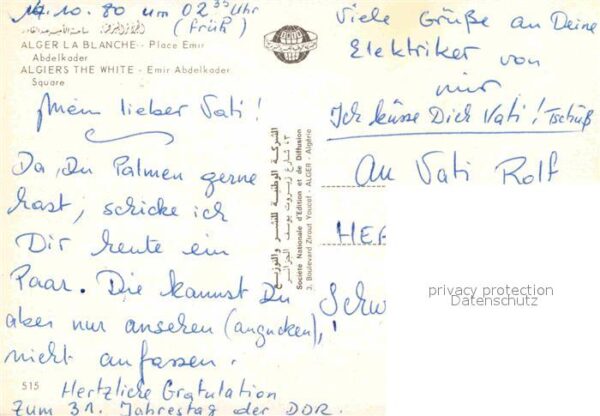 14.10.80 um 02³⁵ Uhr
(früh)
الجزائر البيضاء: ساحة الأمير عبد القادر
ALGER LA BLANCHE - Place Emir
Abdelkader
ALGIERS THE WHITE - Emir Abdelkader
Square
Mein lieber Vati!
Da Du Palmen gerne
hast, schicke ich
Dir heute ein
Paar. Die kannst Du
aber nur ansehen (angucken),!
nicht anfassen.
515
Hertzliche Gratulation
zum 31. Jahrestag der DDR.
الشركة الوطنية للنشر والتوزيع
3، شارع زيروت يوسف الجزائر
Société Nationale d'Edition et de Diffusion
3, Boulevard Zirout Youcef - ALGER - Algérie
Viele Grüße an Deine
Elektriker von
mir
Ich küsse Dich Vati! Tschüß
An Vati Rolf
HEF
Schw
privacy protection
Datenschutz